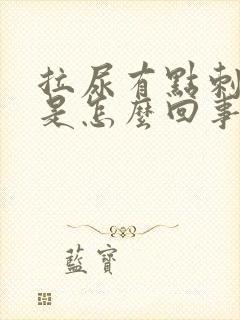 拉尿有點刺
是怎麼回事
藍寶